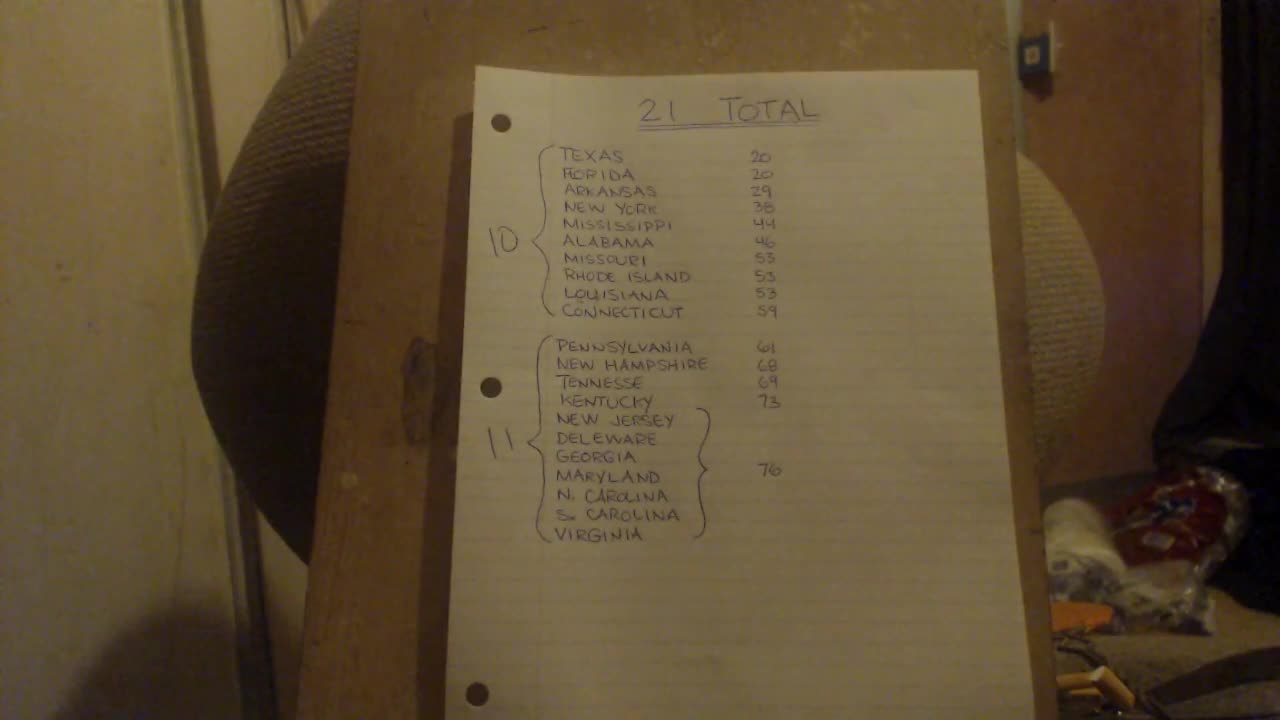 21 TOTAL
TEXAS 20
FLORIDA 20
ARKANSAS 29
NEW YORK 38
MISSISSIPPI 44
10 ALABAMA 46
MISSOURI 53
RHODE ISLAND 53
LOUISIANA 53
CONNECTICUT 59
PENNSYLVANIA 61
NEW HAMPSHIRE 68
TENNESSE 69
KENTUCKY 73
NEW JERSEY
11 DELEWARE
GEORGIA
MARYLAND 76
N. CAROLINA
S. CAROLINA
VIRGINIA